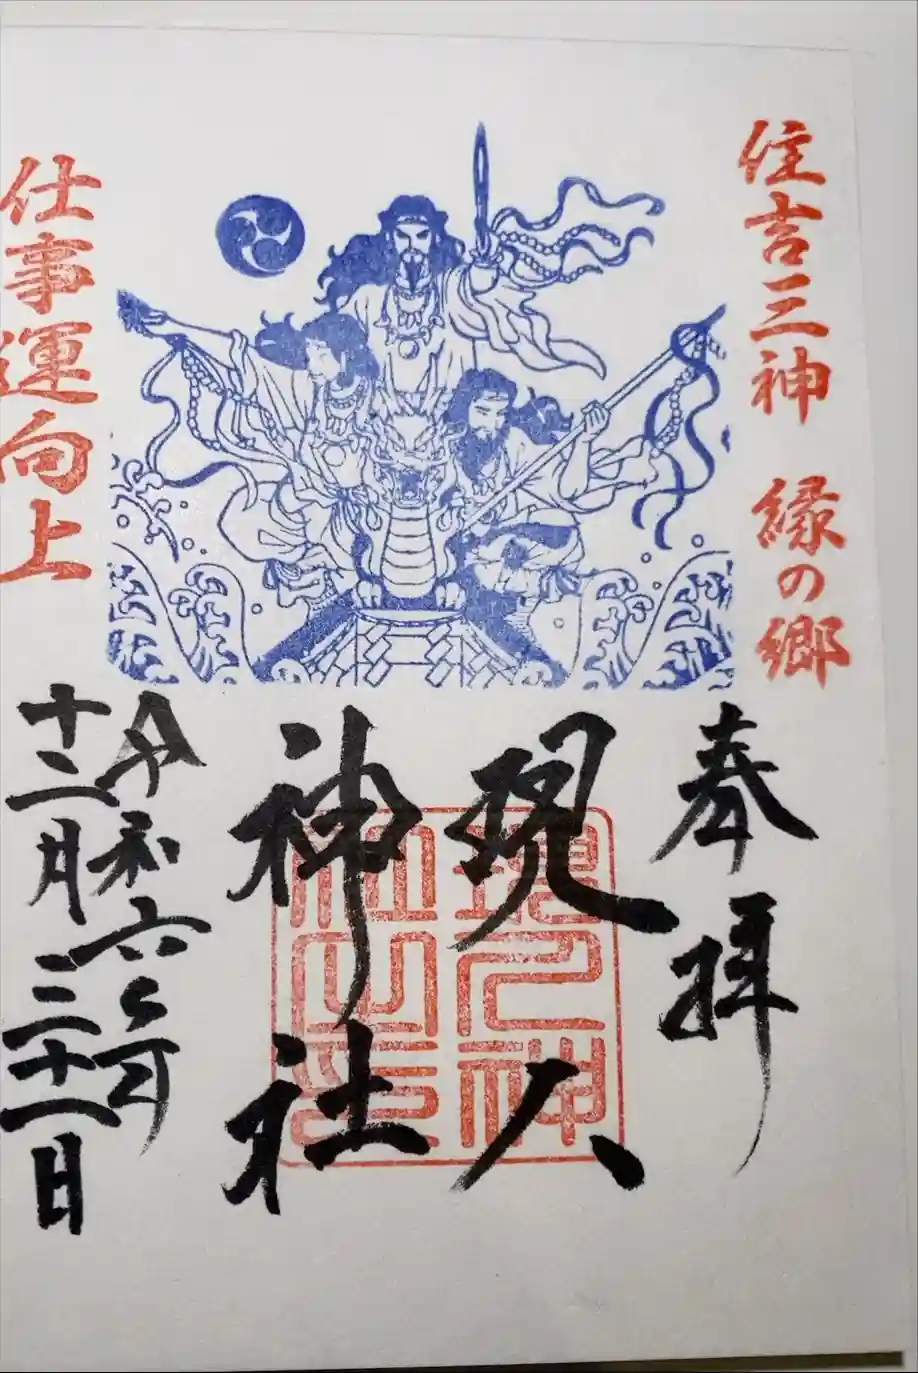 住吉三神 縁の郷
奉拝
現人
神社
現人神
社之印
令和六年
十二月三十一日
仕事運向上